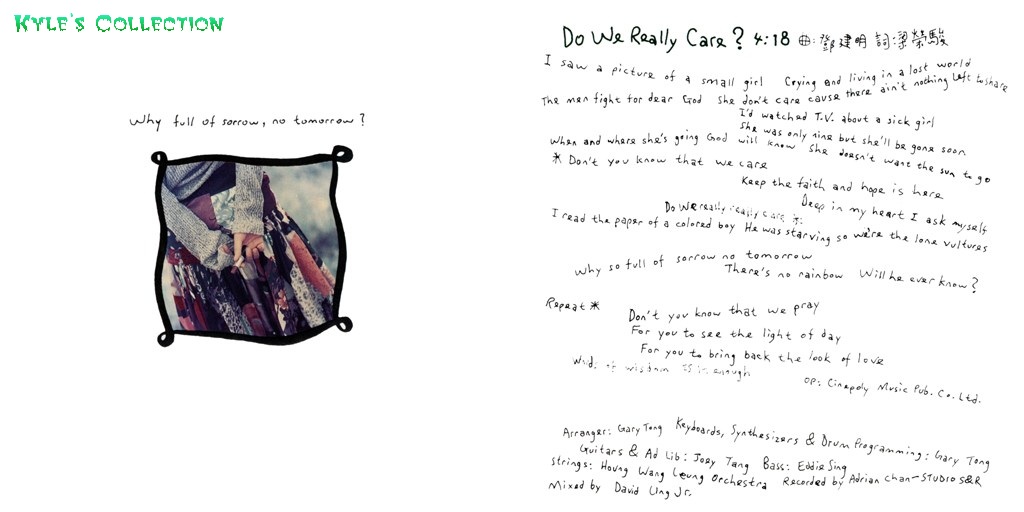 KYLE'S COLLECTION
Why full of sorrow, no tomorrow?
Do We Really Care? 4:18 曲:鄧建明 詞:潔榮駿
I saw a picture of a small girl Crying and living in a lost world
The men fight for dear God She don't care cause there ain't nothing left to share
I'd watched T.V. about a sick girl
She was only nine but she'll be gone soon
When and where she's going God will know She doesn't want the sun to go
* Don't you know that we care
Keep the faith and hope is here
Deep in my heart I ask myself
Do we really really care
I read the paper of a colored boy He was starving so we're the lone vultures
Why so full of sorrow no tomorrow
There's no rainbow Will he ever know?
Repeat *
Don't you know that we pray
For you to see the light of day
For you to bring back the look of love
wisdom enough
OP: Cinepoly Music Pub. Co. Ltd.
Arranger: Gary Tong Keyboards, Synthesizers & Drum Programming: Gary Tong
Guitars & Ad Lib: Joey Tang Bass: Eddie Sing
Strings: Houng Wang Leung Orchestra Recorded by Adrian Chan-STUDIO S&R
Mixed by David Ling Jr.